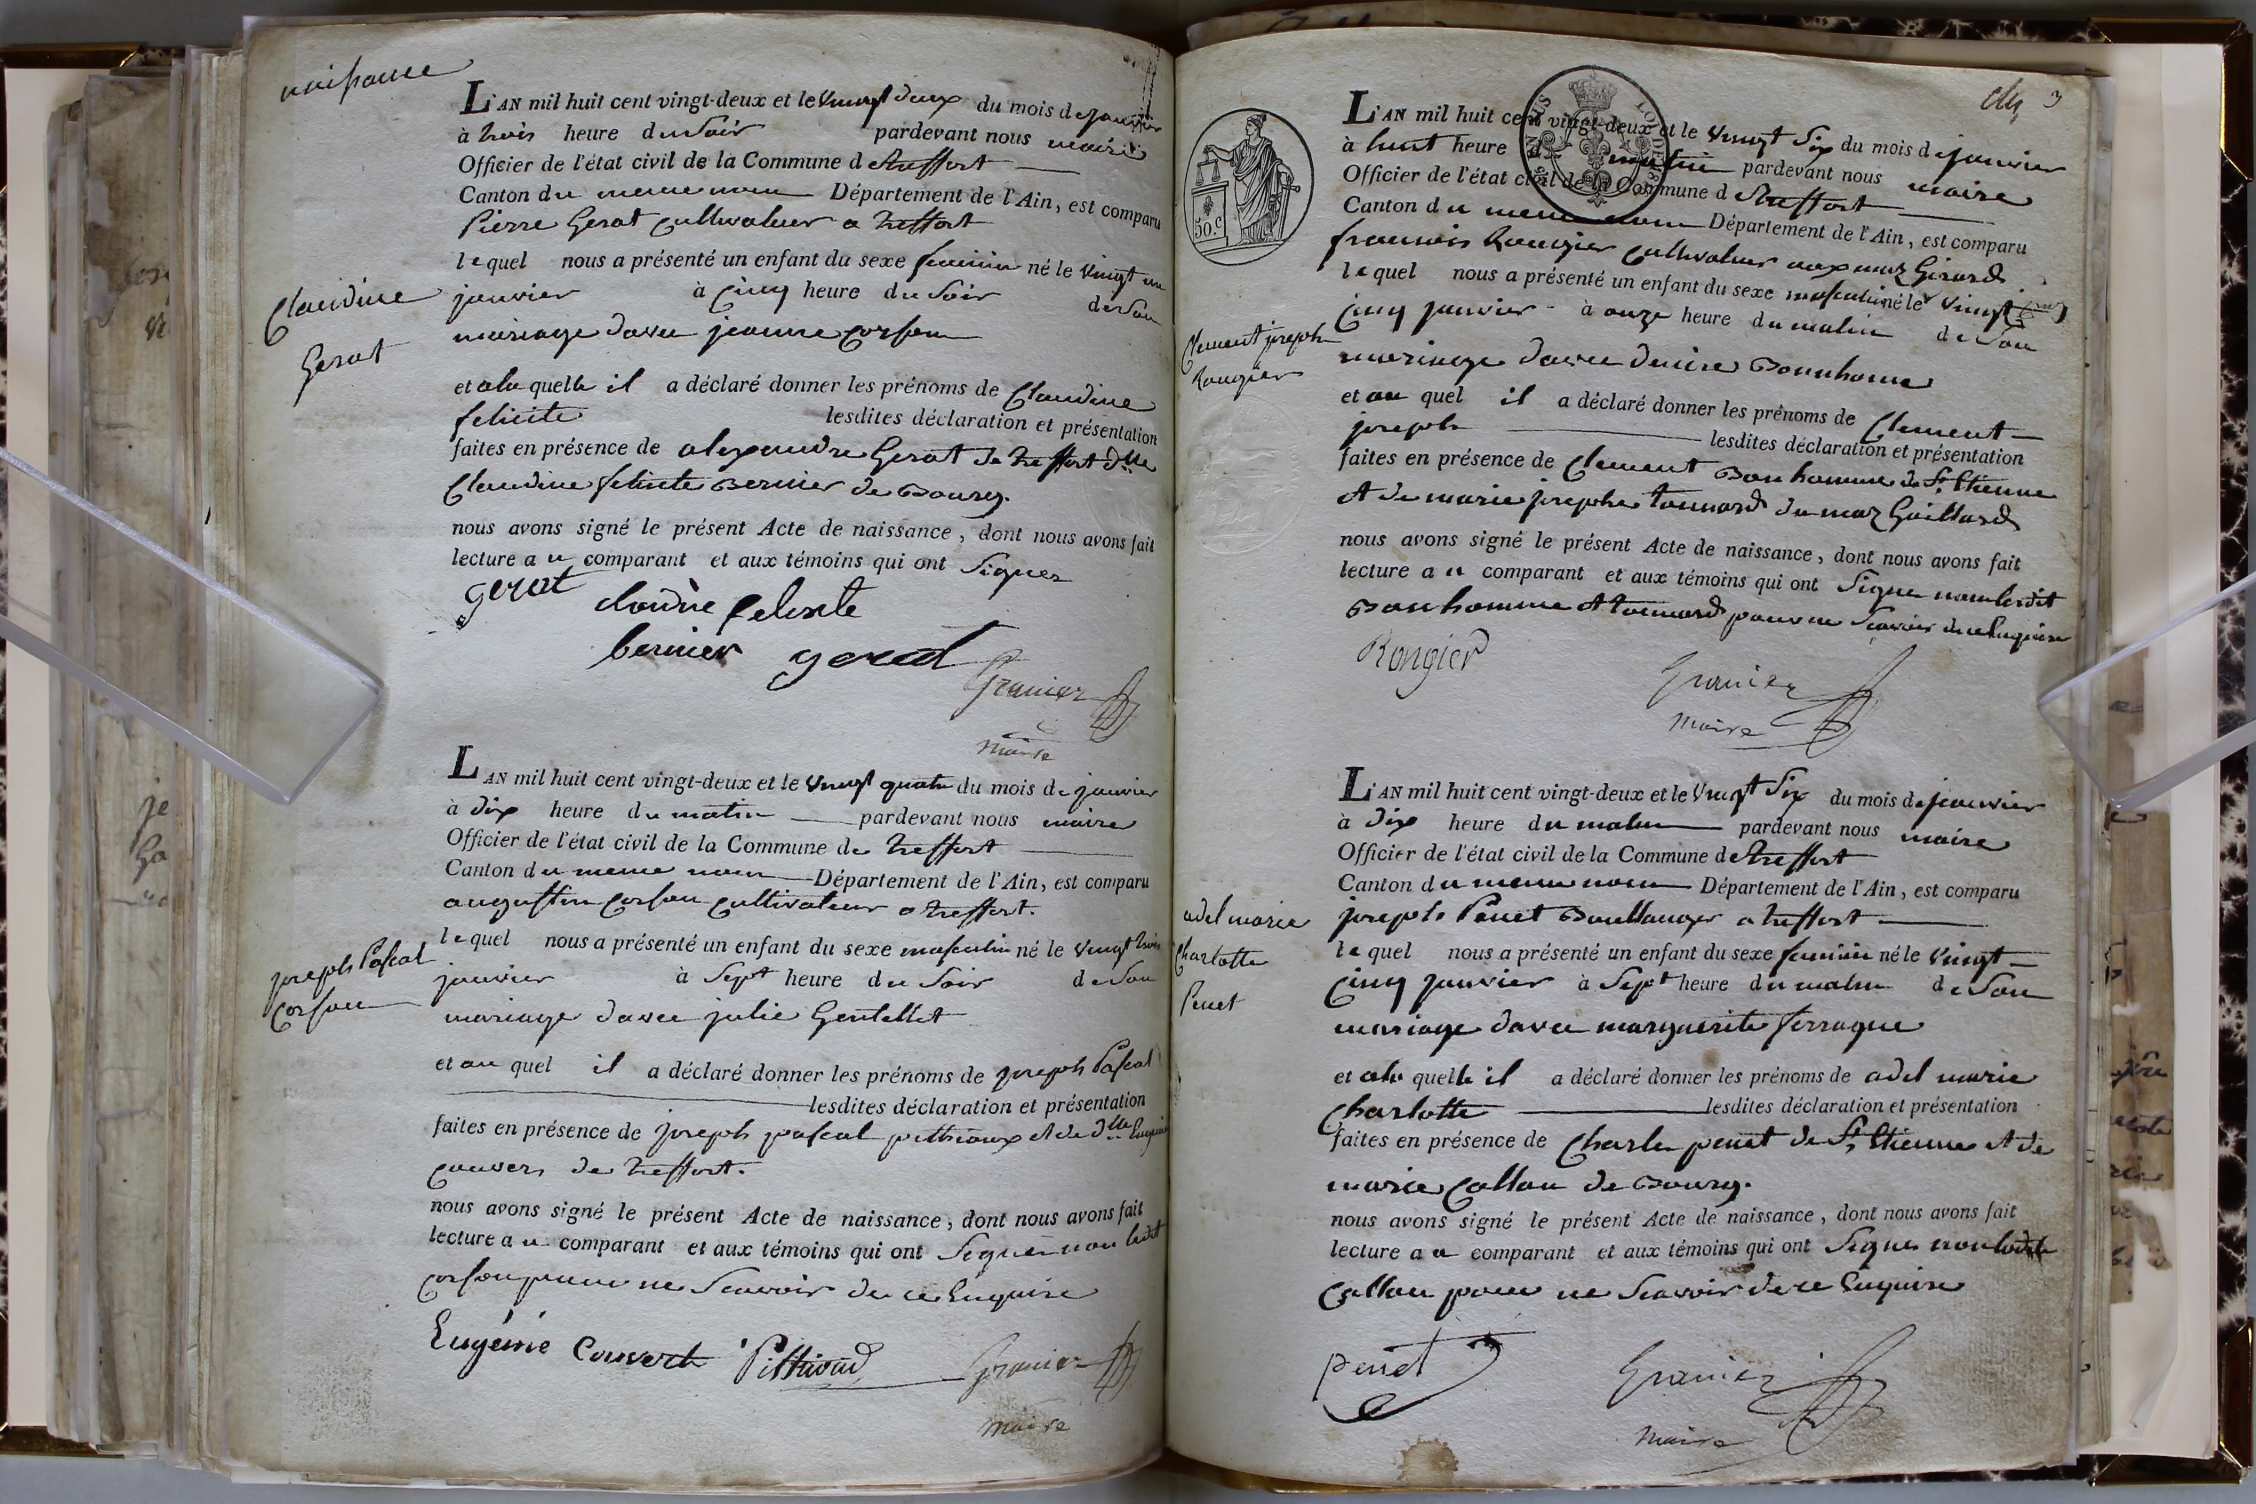 naissance
L'AN mil huit cent vingt-deux et le vingt deux du mois de janvier
à trois heure du soir pardevant nous maire
Officier de l'état civil de la Commune de treffort
Canton du meme nom Département de l'Ain, est comparu
Pierre Gerat Cultivateur a treffort
lequel nous a présenté un enfant du sexe feminin né le vingt un
janvier à Cinq heure du soir de son
mariage davec jeanne corsou
Claudine
Gerat
et a la quelle il a déclaré donner les prénoms de Claudine
felicite lesdites déclaration et présentation
faites en présence de alexandre Gerat de treffort dlle
Claudine felicite Bernier de Bourg.
nous avons signé le présent Acte de naissance, dont nous avons fait
lecture au comparant et aux témoins qui ont signer
gerat
bernier gerat
Granier
maire
L'AN mil huit cent vingt-deux et le vingt quatre du mois de janvier
à dix heure du matin pardevant nous maire
Officier de l'état civil de la Commune de treffort
Canton du meme nom Département de l'Ain, est comparu
augustin corsou cultivateur a treffort.
lequel nous a présenté un enfant du sexe masculin né le vingt trois
janvier à Sept heure du Soir de Son
mariage davec julie Gentellet
joseph Pascal
corsou
et au quel il a déclaré donner les prénoms de joseph Pascal
lesdites déclaration et présentation
faites en présence de joseph pascal pithioux et de dlle Eugenie
couvers de treffort.
nous avons signé le présent Acte de naissance, dont nous avons fait
lecture au comparant et aux témoins qui ont Signer non ledit
corsou pour ne Scavoir de ce Enquire
Eugénie Couvert Pithioud Granier
maire
3
50.C
L'AN mil huit cent vingt-deux et le vingt Six du mois de janvier
à huit heure du matin pardevant nous maire
Officier de l'état civil de la Commune de treffort
Canton du meme nom Département de l'Ain, est comparu
francois Rougier cultivateur aux maz Girard
lequel nous a présenté un enfant du sexe masculin né le vingt
Cinq janvier à onze heure du matin de Son
mariage davec denise Bonhome
Clement joseph
Rougier
et au quel il a déclaré donner les prénoms de Clement
joseph lesdites déclaration et présentation
faites en présence de Clement Bonhomme de St. Etienne
et de marie josephe tounard du maz Gaillard
nous avons signé le présent Acte de naissance, dont nous avons fait
lecture au comparant et aux témoins qui ont Signe non lesdit
Bonhomme et tounard pour ne Scavoir de ce Enquire
Rongier Granier
maire
L'AN mil huit cent vingt-deux et le vingt Six du mois de janvier
à dix heure du matin pardevant nous maire
Officier de l'état civil de la Commune de treffort
Canton du meme nom Département de l'Ain, est comparu
joseph Penet Boullanger a treffort
lequel nous a présenté un enfant du sexe feminin né le vingt
Cinq janvier à Sept heure du matin de Son
mariage davec marguerite ferrague
adel marie
Charlotte
Penet
et a la quelle il a déclaré donner les prénoms de adel marie
Charlotte lesdites déclaration et présentation
faites en présence de Charle penet de St. Etienne et de
marie Callau de Bourg.
nous avons signé le présent Acte de naissance, dont nous avons fait
lecture au comparant et aux témoins qui ont Signer non ladite
Callau pour ne Scavoir de ce Enquire
penet Granier
maire